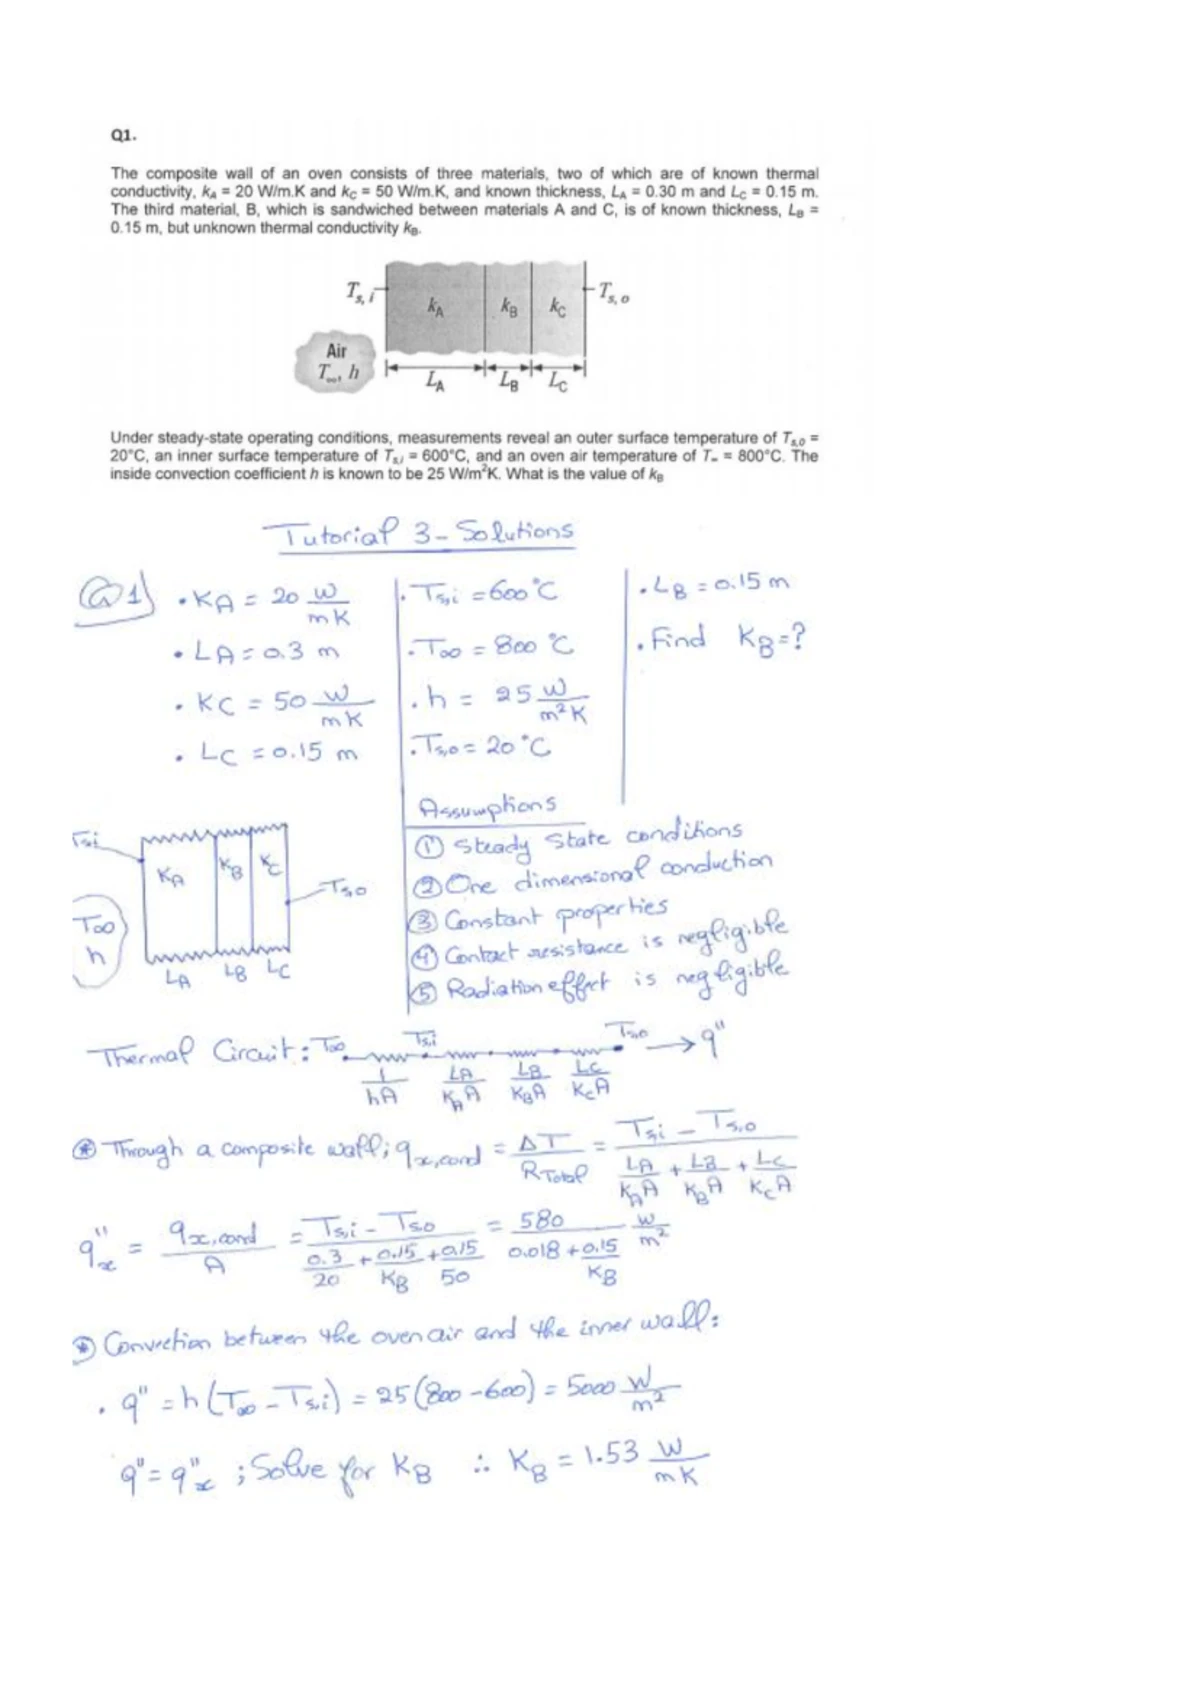 Q1.
The composite wall of an oven consists of three materials, two of which are of known thermal
conductivity, kA = 20 W/m.K and kC = 50 W/m.K, and known thickness, LA = 0.30 m and LC = 0.15 m.
The third material, B, which is sandwiched between materials A and C, is of known thickness, LB =
0.15 m, but unknown thermal conductivity kB.
Ts, i
kA kB kC
Ts, o
Air
T∞, h
LA LB LC
Under steady-state operating conditions, measurements reveal an outer surface temperature of Ts,o =
20°C, an inner surface temperature of Ts,i = 600°C, and an oven air temperature of T∞ = 800°C. The
inside convection coefficient h is known to be 25 W/m²K. What is the value of kB
Tutorial 3 - Solutions
Q1)
• KA = 20 W/mK
• LA = 0.3 m
• KC = 50 W/mK
• LC = 0.15 m
• Ts,i = 600°C
• T∞ = 800 °C
• h = 25 W/m²K
• Ts,o = 20 °C
• LB = 0.15 m
• Find KB = ?
Assumptions
① Steady State conditions
② One dimensional conduction
③ Constant properties
④ Contact resistance is negligible
⑤ Radiation effect is negligible
Tsi
KA KB KC
Tso
T∞
h
LA LB LC
Thermal Circuit: T∞ Ts,i Ts,o → q"
1/hA LA/KAA LB/KBA LC/KCA
⊛ Through a composite wall; qx,cond = ΔT/RTotal = (Ts,i - Ts,o)/(LA/KAA + LB/KBA + LC/KCA)
q"x = qx,cond/A = (Ts,i - Tso)/(0.3/20 + 0.15/KB + 0.15/50) = 580/(0.018 + 0.15/KB) W/m²
⊛ Convection between the oven air and the inner wall:
• q" = h (T∞ - Ts,i) = 25 (800 - 600) = 5000 W/m²
q" = q"x ; Solve for KB ∴ KB = 1.53 W/mK